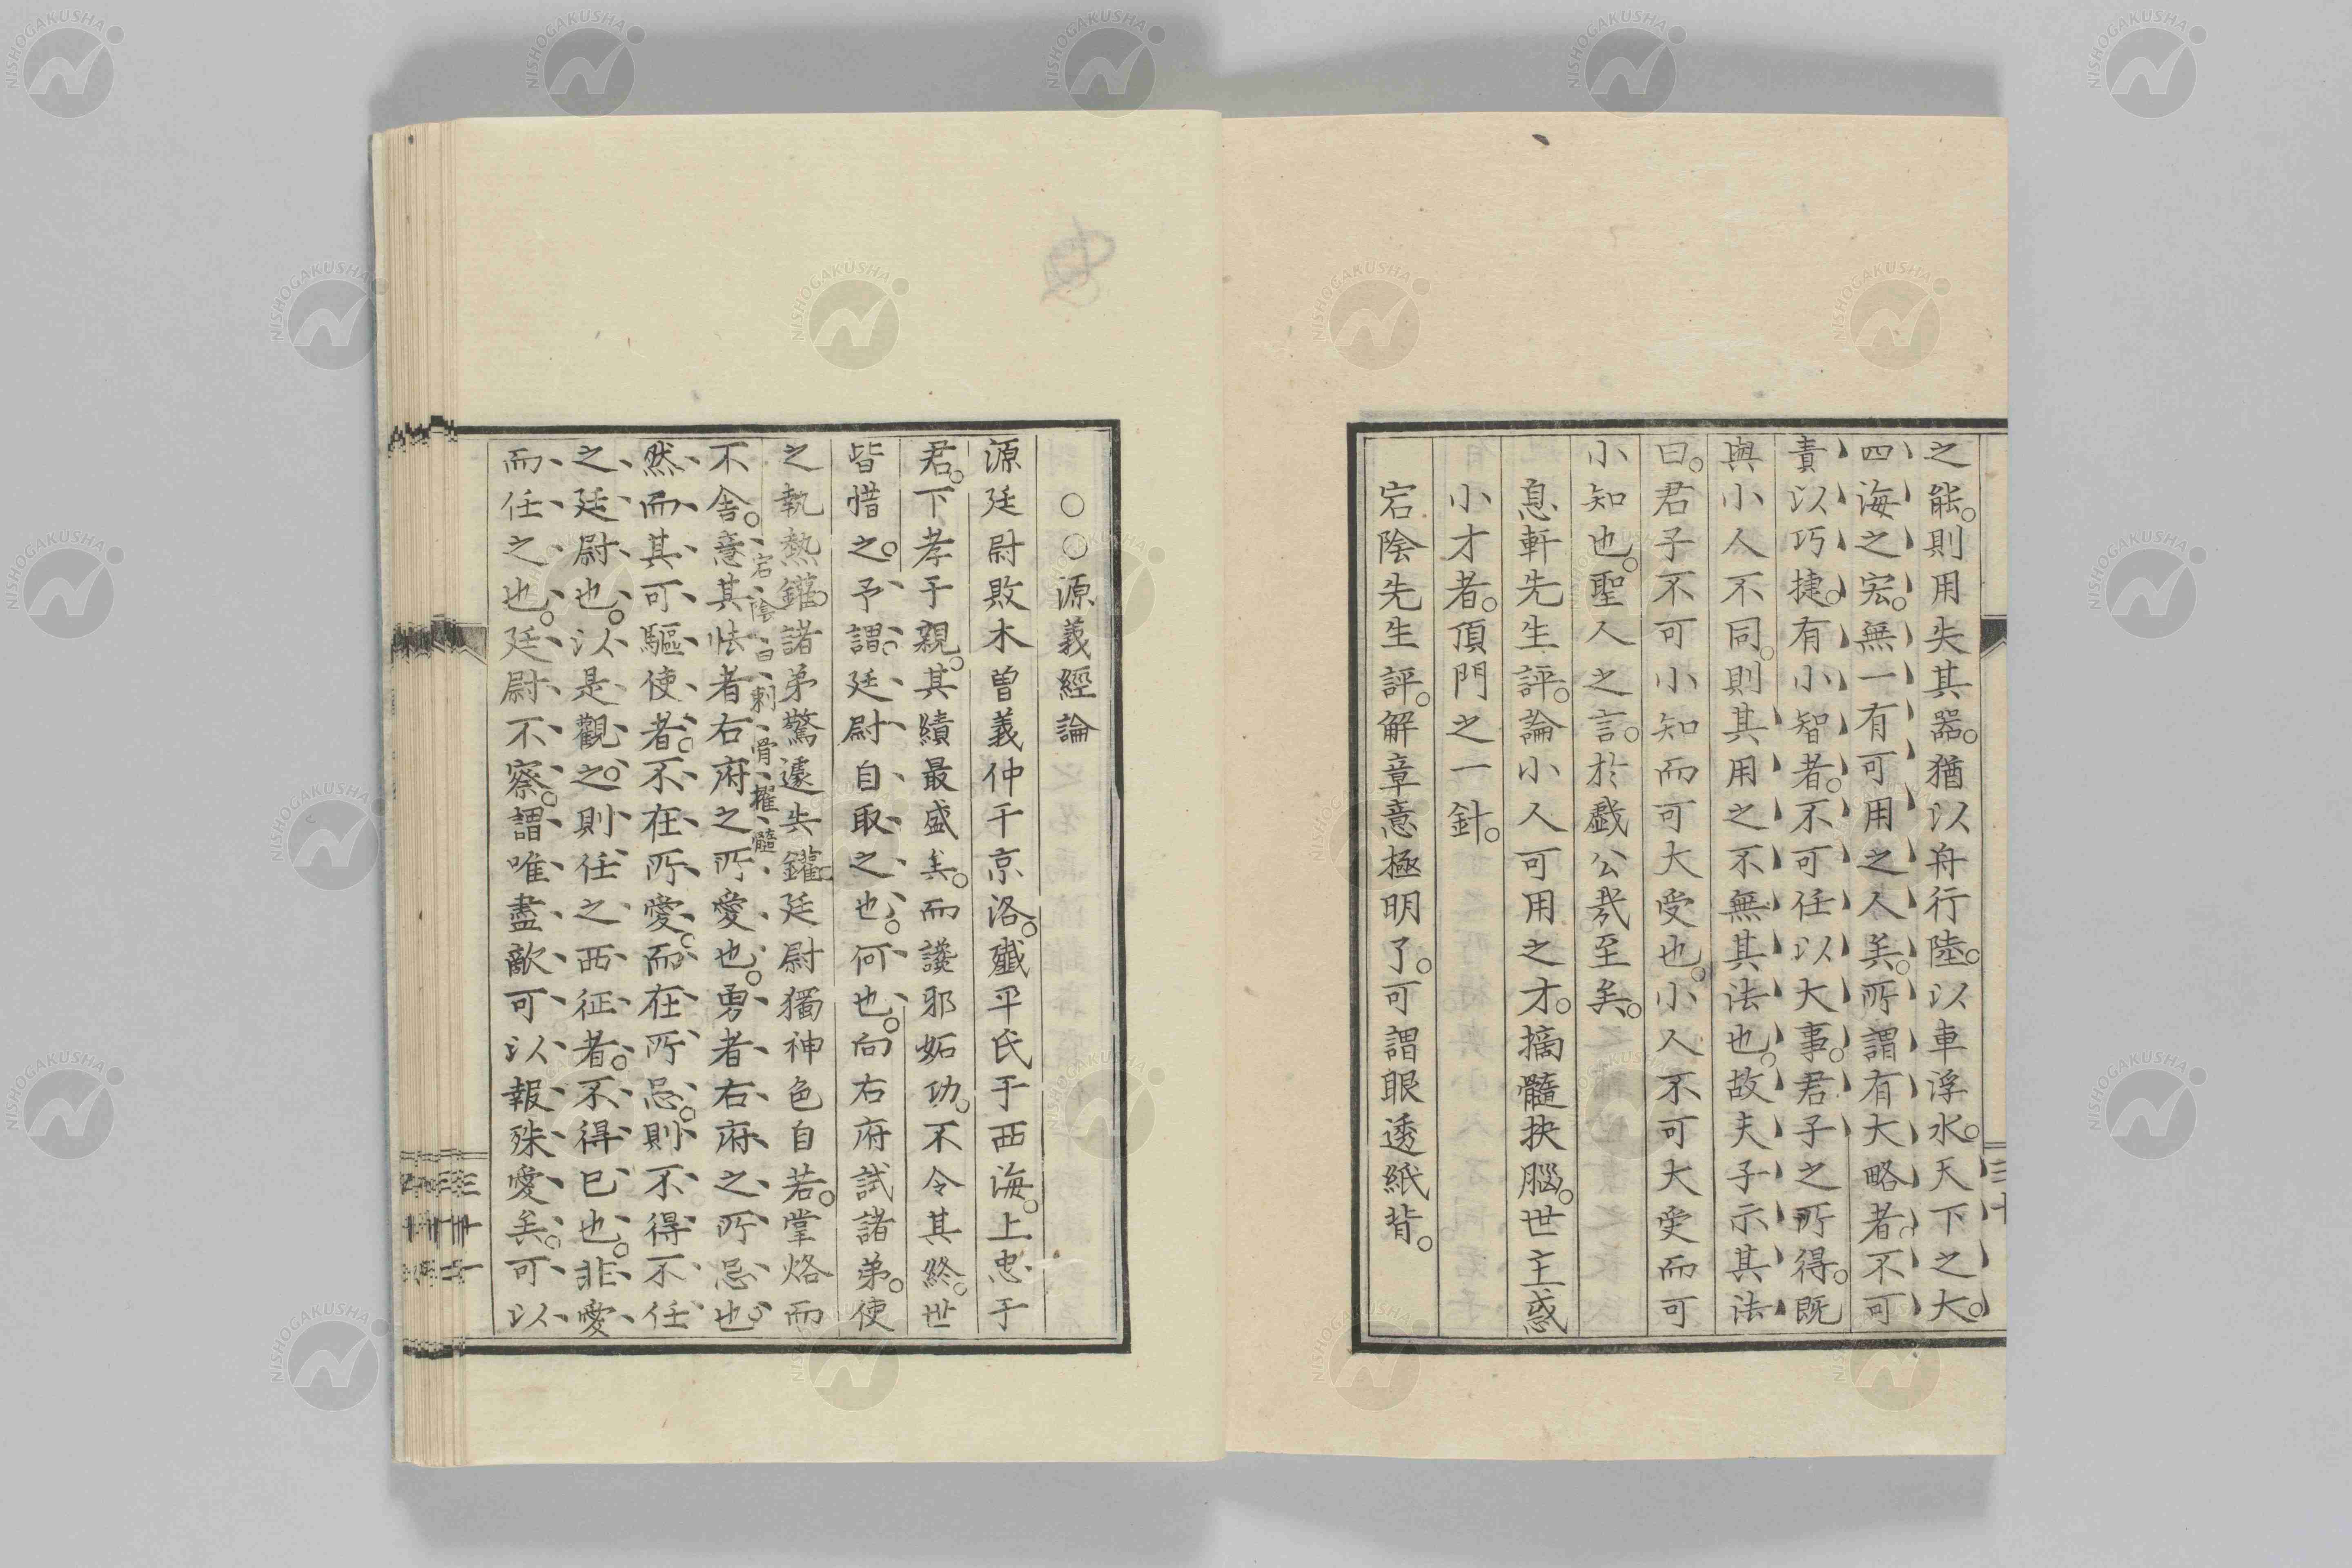 之能。則用失其器。猶以舟行陸。以車浮水。天下之大。
四海之宏。無一有可用之人矣。所謂有大略者。不可
責以巧捷。有小智者。不可任以大事。君子之所得。既
與小人不同。則其用之不無其法也。故夫子示其法
曰。君子不可小知而可大受也。小人不可大受而可
小知也。聖人之言。於戲公哉至矣。
息軒先生評。論小人可用之才。摘髓抉腦。世主惑
小才者。頂門之一針。
宕陰先生評。解章意極明了。可謂眼透紙背。
三十
○○源義經論
源廷尉敗木曽義仲于京洛。殱平氏于西海。上忠于
君。下孝于親。其績最盛矣。而讒邪妬功。不令其終。世
皆惜之。予謂。廷尉自取之也。何也。向右府試諸弟。使
之執熱鑵。諸弟驚遽失鑵。廷尉獨神色自若。掌烙而
不舎。意其怯者右府之所愛也。勇者右府之所忌也。
宕陰曰刺骨擢髓
然而其可驅使者。不在所愛。而在所忌。則不得不任
之廷尉也。以是觀之。則任之西征者。不得已也。非愛
而任之也。廷尉不察。謂唯盡敵可以報殊愛矣。可以
三十一
NISHOGAKUSHA